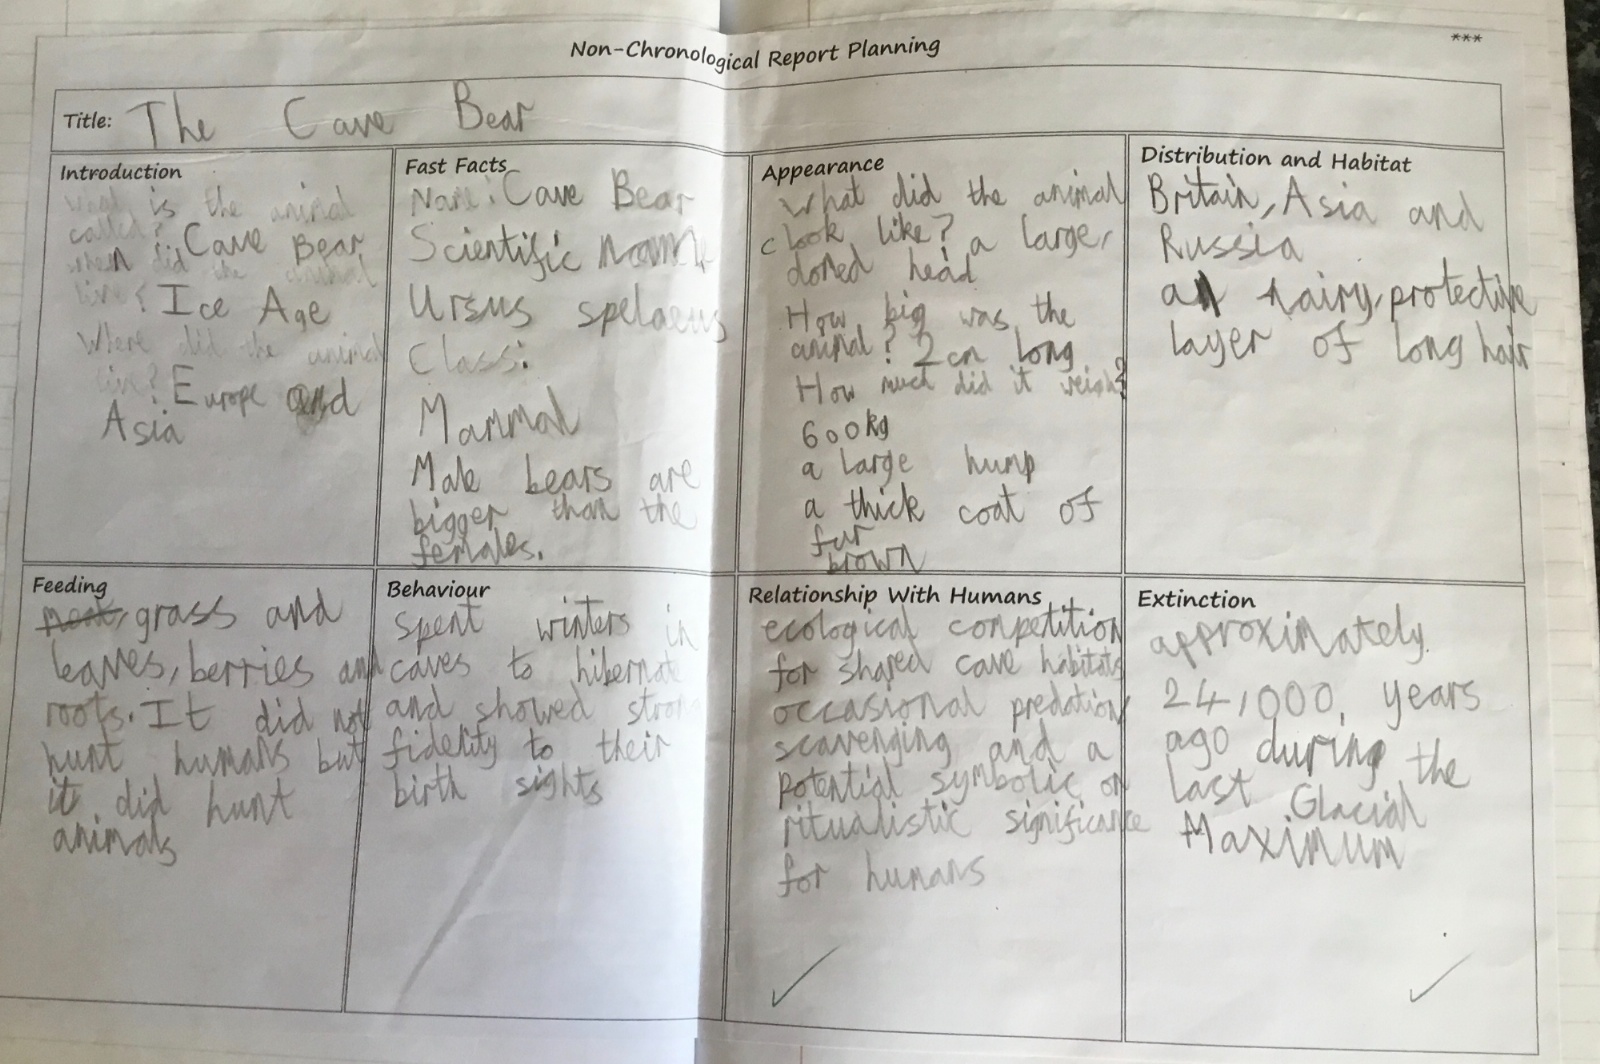 Non-Chronological Report Planning
***
Title: The Cave Bear
Introduction
What is the animal
called? Cave Bear
when did the animal
live? Ice Age
Where did the animal
live? Europe and
Asia
Fast Facts
Name: Cave Bear
Scientific name
Ursus spelaeus
Class:
Mammal
Male bears are
bigger than the
females.
Appearance
What did the animal
look like? a large,
domed head
How big was the
animal? 2cm long
How much did it weigh?
600kg
a large hump
a thick coat of
fur
brown
Distribution and Habitat
Britain, Asia and
Russia
a hairy, protective
layer of long hair
Feeding
meat, grass and
leaves, berries and
roots. It did not
hunt humans but
it did hunt
animals
Behaviour
spent winters in
caves to hibernate
and showed strong
fidelity to their
birth sights
Relationship With Humans
ecological competition
for shared cave habitats
occasional predation
scavenging and a
potential symbolic or
ritualistic significance
for humans
Extinction
approximately
24,000, years
ago during the
last Glacial
Maximum